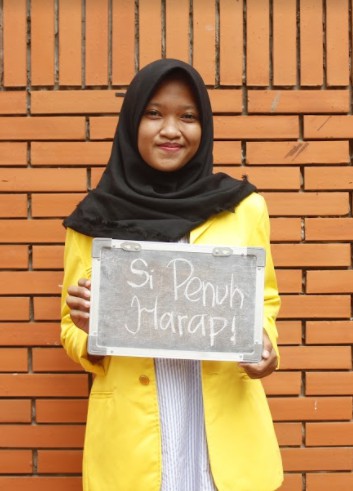 Si Penuh
Harap!